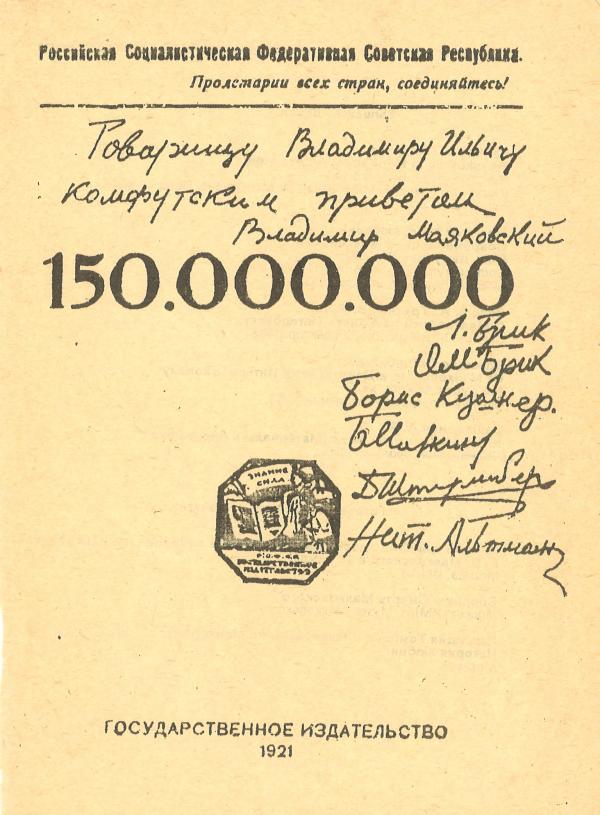 Российская Социалистическая Федеративная Советская Республика.
Пролетарии всех стран, соединяйтесь!
Товарищу Владимиру Ильичу
комфутским приветом
Владимир Маяковский
150.000.000
Л. Брик
О М Брик
Борис Кушнер.
Б Малкин
Д Штеренбер
Нат. Альтман
ЗНАНИЕ
СИЛА
Р.С.Ф.С.Р.
ГОСУДАРСТВЕННОЕ
ИЗДАТЕЛЬСТВО
ГОСУДАРСТВЕННОЕ ИЗДАТЕЛЬСТВО
1921